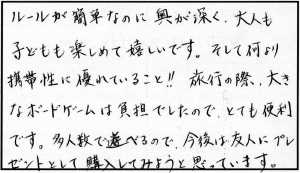 ルールが簡単なのに奥が深く、大人も
子どもも楽しめて嬉しいです。そして何より
携帯性に優れていること!! 旅行の際、大き
なボードゲームは負担でしたので、とても便利
です。多人数で遊べるので、今後は友人にプレ
ゼントとして購入してみようと思っています。